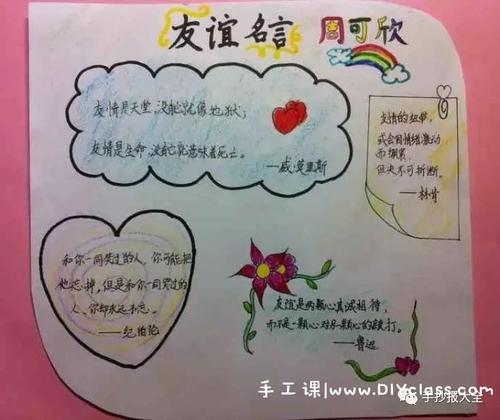 友谊名言 周可欣
友情是天堂,没它就像地狱;
友情是生命,没它就意味着死亡。
——威·莫里斯
友情的纽带,
或会因情绪激动
而绷紧,
但决不可折断。
——林肯
和你一同笑过的人,你可能把
他忘掉,但是和你一同哭过的
人,你却永远不忘。
——纪伯伦
友谊是两颗心真诚相待,
而不是一颗心对另一颗心的敲打。
——鲁迅
手工课|www.DIYclass.com
手抄报大全